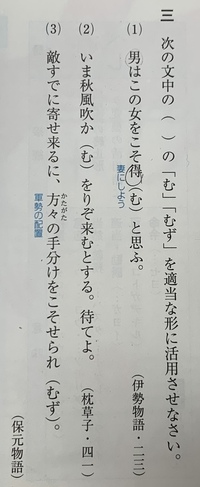 三 次の文中の（ ）の「む」「むず」を適当な形に活用させなさい。
(1) 男はこの女をこそ得（む）と思ふ。（伊勢物語・二三）
妻にしよう
(2) いま秋風吹か（む）をりぞ来むとする。待てよ。（枕草子・四一）
(3) 敵すでに寄せ来るに、方々の手分けをこそせられ（むず）。
かたがた
軍勢の配置
（保元物語）